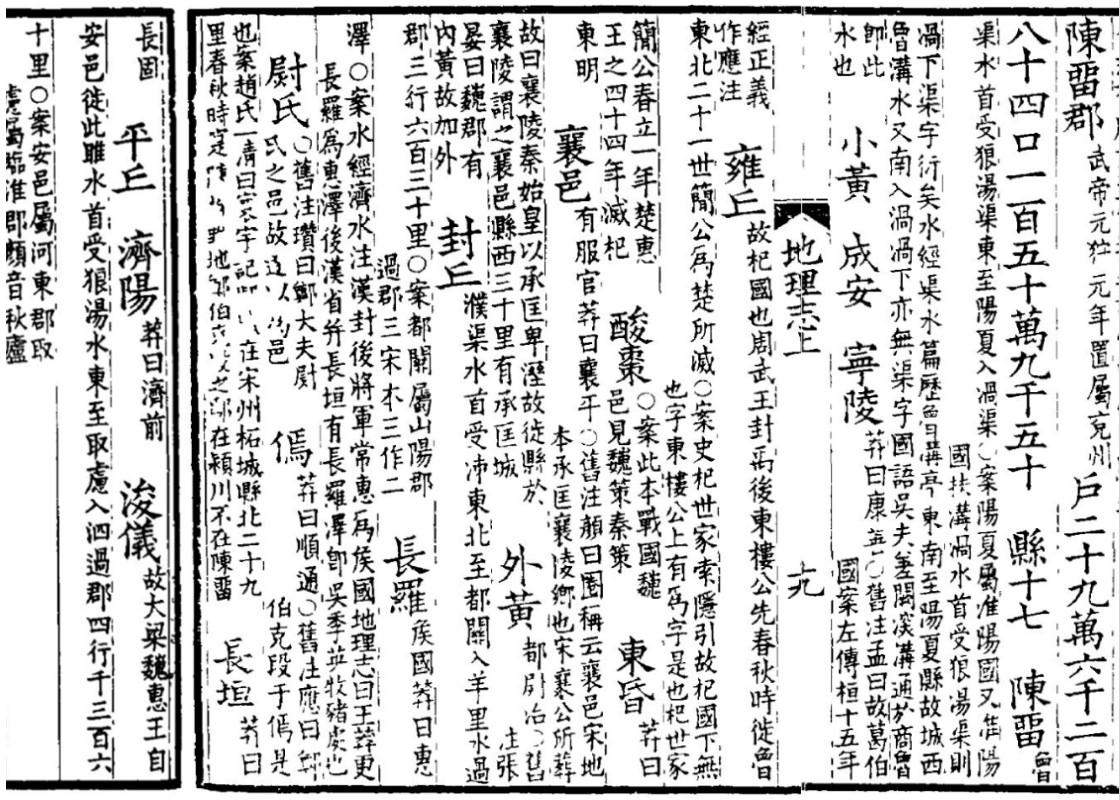 陳畱郡 武帝元狩元年置屬兗州 戶二十九萬六千二百
八十四口一百五十萬九千五十 縣十七 陳畱 魯
渠水首受狼湯渠東至陽夏入渦渠○案陽夏屬淮陽國又淮陽
國扶溝渦水首受狼湯渠則
渦下渠字衍矣水經渠水篇歷魯溝亭東南至陽夏縣故城西
魯溝水又南入渦渦下亦無渠字國語吳夫差闕深溝通於商魯
卽此
水也 小黃 成安 寧陵 莽曰康善○舊注孟曰故葛伯
國案左傳桓十五年
地理志上 十九
經正義
作應注 雍丘 故杞國也周武王封禹後東樓公先春秋時徙魯
東北二十一世簡公爲楚所滅○案史杞世家索隱引故杞國下無
也字東樓公上有爲字是也杞世家
簡公春立一年楚惠
王之四十四年滅杞 酸棗 ○案此本戰國魏
邑見魏策秦策 東昏 莽曰
東明 襄邑 有服官莽曰襄平○舊注顏曰圈稱云襄邑宋地
本承匡襄陵鄉也宋襄公所葬
故曰襄陵秦始皇以承匡卑溼故徙縣於
襄陵謂之襄邑縣西三十里有承匡城 外黃 都尉治○舊注張
晏曰魏郡有
內黃故加外 封丘 濮渠水首受泲東北至都關入羊里水過
郡三行六百三十里○案都關屬山陽郡
過郡三宋本三作二 長羅 侯國莽曰惠
澤○案水經濟水注漢封後將軍常惠爲侯國地理志曰王莽更
長羅爲惠澤後漢省幷長垣有長羅澤卽吳季並牧豬處也
尉氏 ○舊注瓚曰鄭大夫尉
氏之邑故遂以爲邑 傿 莽曰順通○舊注應曰鄭
伯克段于傿是
也案趙氏一清曰寰宇記 在宋州柘城縣北二十九
里春秋時 地鄭伯克 之鄢在潁川不在陳畱 長垣 莽曰
長固 平丘 濟陽 莽曰濟前 浚儀 故大梁魏惠王自
安邑徙此睢水首受狼湯水東至取慮入泗過郡四行千三百六
十里○案安邑屬河東郡取
慮屬臨淮郡顏音秋廬